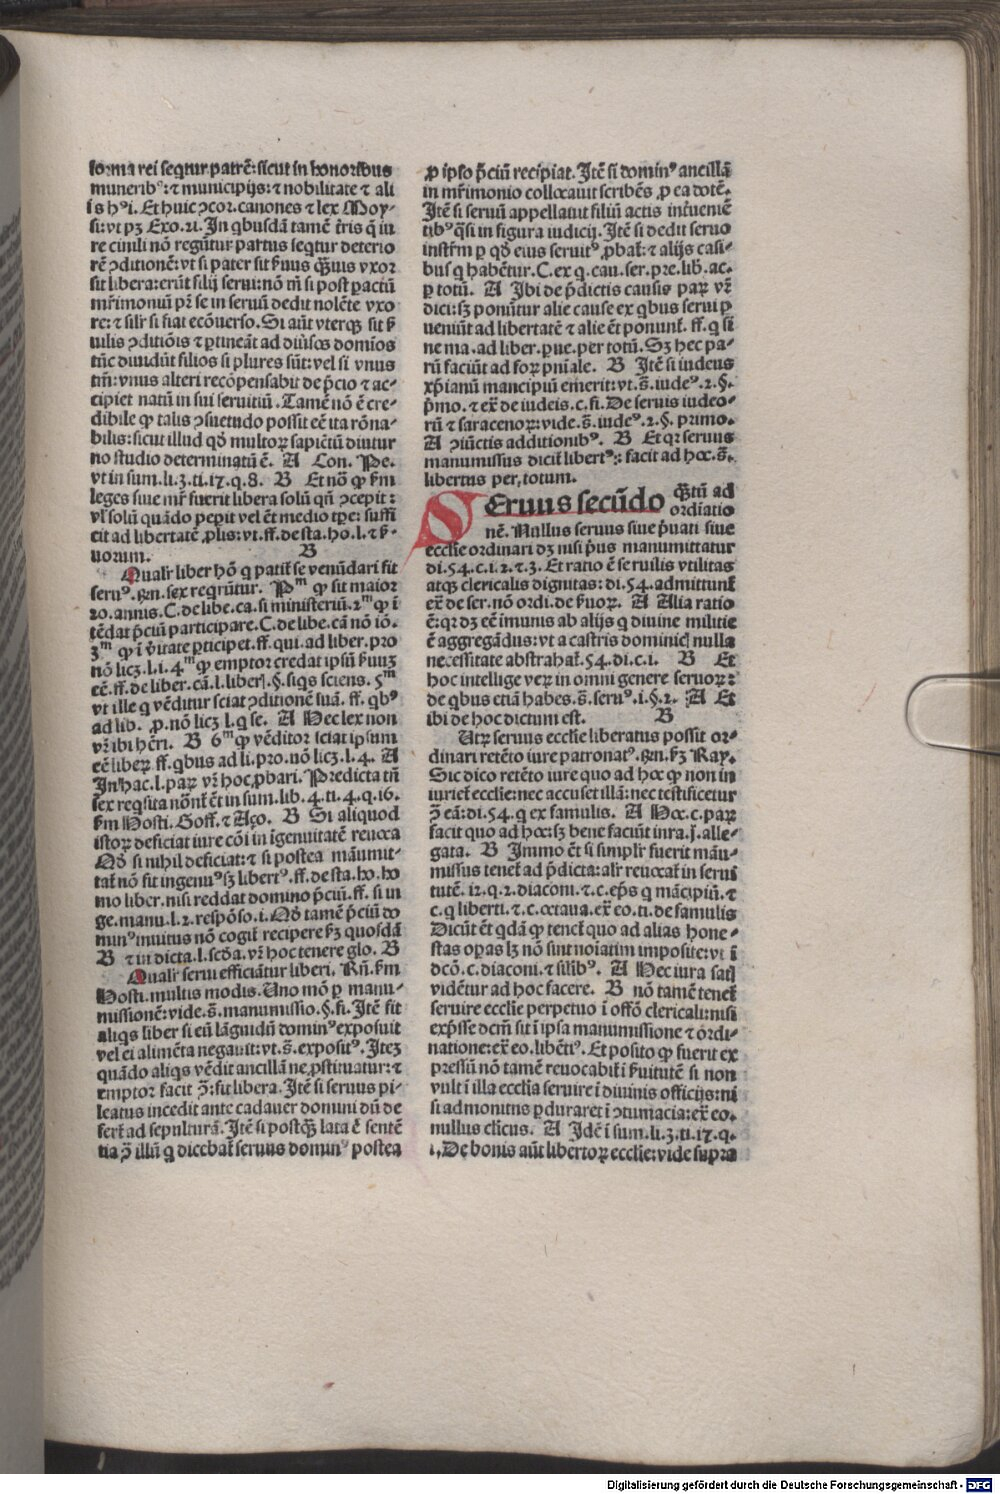 forma rei seqtur patrē: sicut in honoribus
munerib⁹: ⁊ municipijs: ⁊ nobilitate ⁊ ali
is h⁹i. Et huic ꝯcor. canones ⁊ lex Moy-
si: vt pꝫ Exo. 21. In qbusdā tamē tris q̄ iu
re ciuili nō regūtur partus seqtur deterio
rē ꝯditionē: vt si pater sit ẜuus q̄ꝫuis vxor
sit libera: erūt filij serui: nō tñ si post ꝑactū
mr̄imoniū pr̄ se in seruū dedit nolēte vxo
re: ⁊ silr̄ si fiat ecōuerso. Si aūt vterqꝫ sit ẜ
uilis ꝯditiōis ⁊ ꝑtineāt ad diuẜos domīos
tūc diuidūt filios si plures sūt: vel si vnus
tm̄: vnus alteri recōpensabit de p̄cio ⁊ ac-
cipiet natū in sui seruitiū. Tamē nō ē cre-
dibile ꝙ talis ꝯsuetudo possit eē ita rōna-
bilis: sicut illud qđ multoꝝ sapiētū diutur
no studio determinatū ē. A Con. Pe.
vt in sum. li. 3. ti. 17. q. 8. B Et nō ꝙ ẜm
leges siue mr̄ fuerit libera solū qn̄ ꝯcepit:
vl̄ solū quādo peꝑit vel ēt medio tꝑe: suffi
cit ad libertatē ꝓlis: vt. ff. de sta. ho. l. ⁊ ẜ-
uorum. B
Qualr̄ liber hō q patit̄ se venūdari fit
seru⁹. Rn. sex reqrūtur. Pᵐ ꝙ sit maior
20. annis. C. de libe. ca. si ministeriū. 2ᵐ ꝙ ī
tēdat p̄ciū participare. C. de libe. cā nō iō.
3ᵐ ꝙ ī ūitate ꝑticipet. ff. qui. ad liber. pro
nō licꝫ. l. i. 4ᵐ ꝙ emptor credat ipsū ẜuuꝫ
eē. ff. de liber. cā. l. liberi. §. siqs sciens. 5ᵐ
vt ille q vēditur sciat ꝯditionē suā. ff. qb⁹
ad lib. ꝓ. nō licꝫ l. q se. A Hec lex non
vr̄ ibi hēri. B 6ᵐ ꝙ vēditor sciat ipsum
eē libeꝝ ff. qbus ad li. pro. nō licꝫ. l. 4. A
In hac. l. paꝝ vr̄ hoc ꝓbari. Predicta tñ
sex reqsita nōnt̄ ēt in sum. lib. 4. ti. 4. q. 16.
ẜm Hosti. Goff. ⁊ Aço. B Si aliquod
istoꝝ deficiat iure cōi in īgenuitatē reuoca
Nō si nihil deficiat: ⁊ si postea māumit-
tat̄ nō fit ingenu⁹ sꝫ libert⁹. ff. de sta. ho. ho
mo liber. nisi reddat domino p̄ciū. ff. si in
ge. manu. l. 2. respōso. i. Nō tamē p̄ciū do
min⁹ inuitus nō cogit̄ recipere ẜꝫ quosdā
B ⁊ in dicta. l. scđa. vr̄ hoc tenere glo. B
Qualr̄ serui efficiātur liberi. Rn̄. ẜm
Hosti. multis modis. Uno mō ꝑ manu-
missionē: vide. s̄. manumissio. §. fi. Itē fit
aliqs liber si eū lāguidū domin⁹ exposuit
vel ei alimēta negauit: vt. s̄. exposit⁹. Iteꝫ
quādo aliqs vēdit ancillā ne ꝓstituatur: ⁊
emptor facit ꝯ̄: fit libera. Itē si seruus pi-
leatus incedit ante cadauer domini dū de
fert̄ ad sepulturā. Itē si postq̄ꝫ lata ē sentē
tia ꝯ̄ illū q dicebat̄ seruus domin⁹ postea
ꝓ ipso p̄ciū recipiat. Itē si domin⁹ ancillā
in mr̄imonio collocauit scribēs ꝓ ea dotē.
Itē si seruū appellauit filiū actis inẜueniē
tib⁹ q̄si in figura iudicij. Itē si dedit seruo
instr̄m ꝑ qđ eius seruit⁹ ꝓbat̄: ⁊ alijs casi-
bus q habētur. C. ex q. cau. ser. pre. lib. ac.
ꝑ totū. A Ibi de p̄dictis causis paꝝ vr̄
dici: sꝫ ponūtur alie cause ex qbus serui ꝑ
ueniūt ad libertatē ⁊ alie ēt ponunt̄. ff. q si
ne ma. ad liber. ꝑue. per totū. Sꝫ hec pa-
rū faciūt ad foꝝ pn̄iale. B Itē si iudeus
xp̄ianū mancipiū emerit: vt. s̄. iude⁹. 2. §.
p̄mo. ⁊ ex̄ de iudeis. c. fi. De seruis iudeo-
rū ⁊ saracenoꝝ: vide. s̄. iude⁹. 2. §. primo.
A ꝯiūctis additionib⁹. B Et qr seruus
manumissus dicit̄ libert⁹: facit ad hoc. s̄.
libertus per, totum.
Seruus secūdo q̄ꝫtū ad
ordīatio
nē. Nullus seruus siue p̄uati siue
ecclīe ordinari dꝫ nisi p̄us manumittatur
di. 54. c. i. 2. ⁊. 3. Et ratio ē seruilis vtilitas
atqꝫ clericalis dignitas: di. 54. admittunt̄
ex̄ de ser. nō ordi. de ẜuoꝝ. A Alia ratio
ē: qr dꝫ eē īmunis ab alijs q diuine militie
ē aggregādus: vt a castris dominici nulla
necessitate abstrahat̄. 54. di. c. i. B Et
hoc intellige veꝝ in omni genere seruoꝝ:
de qbus etiā habes. s̄. seru⁹. i. §. 2. A Et
ibi de hoc dictum est. B
Utꝝ seruus ecclīe liberatus possit or-
dinari retēto iure patronat⁹. Rn. ẜꝫ Ray.
Sic dico retēto iure quo ad hoc ꝙ non in
iuriet̄ ecclīe: nec accuset illā: nec testificetur
ꝯ̄ eā: di. 54. q ex famulis. A Hoc. c. paꝝ
facit quo ad hoc: sꝫ bene faciūt infra. j. alle-
gata. B Immo ēt si simplr̄ fuerit māu-
missus tenet̄ ad p̄dicta: alr̄ reuocat̄ in serui
tutē. 12. q. 2. diaconi. ⁊. c. ep̄s q mācipiū. ⁊
c. q liberti. ⁊. c. octaua. ex̄ eo. ti. de famulis
Dicūt ēt qdā ꝙ tenet̄ quo ad alias hone-
stas oꝑas lꝫ nō sint noīatim imposite: vt ī
dcō. c. diaconi. ⁊ silib⁹. A Hec iura satꝭ
vidētur ad hoc facere. B nō tamē tenet̄
seruire ecclīe perpetuo ī offō clericali: nisi
exp̄sse dcm̄ sit ī ipsa manumissione ⁊ ordi-
natione: ex̄ eo. libēti⁹. Et posito ꝙ fuerit ex
pressū nō tamē reuocabit̄ ī ẜuitutē si non
vult ī illa ecclīa seruire ī diuinis officijs: ni
si admonitus ꝑduraret ī ꝯtumacia: ex̄ eo.
nullus clīcus. A Idē ī sum. li. 3. ti. 17. q.
i. De bonis aūt libertoꝝ ecclīe: vide supra
Digitalisierung gefördert durch die Deutsche Forschungsgemeinschaft - DFG